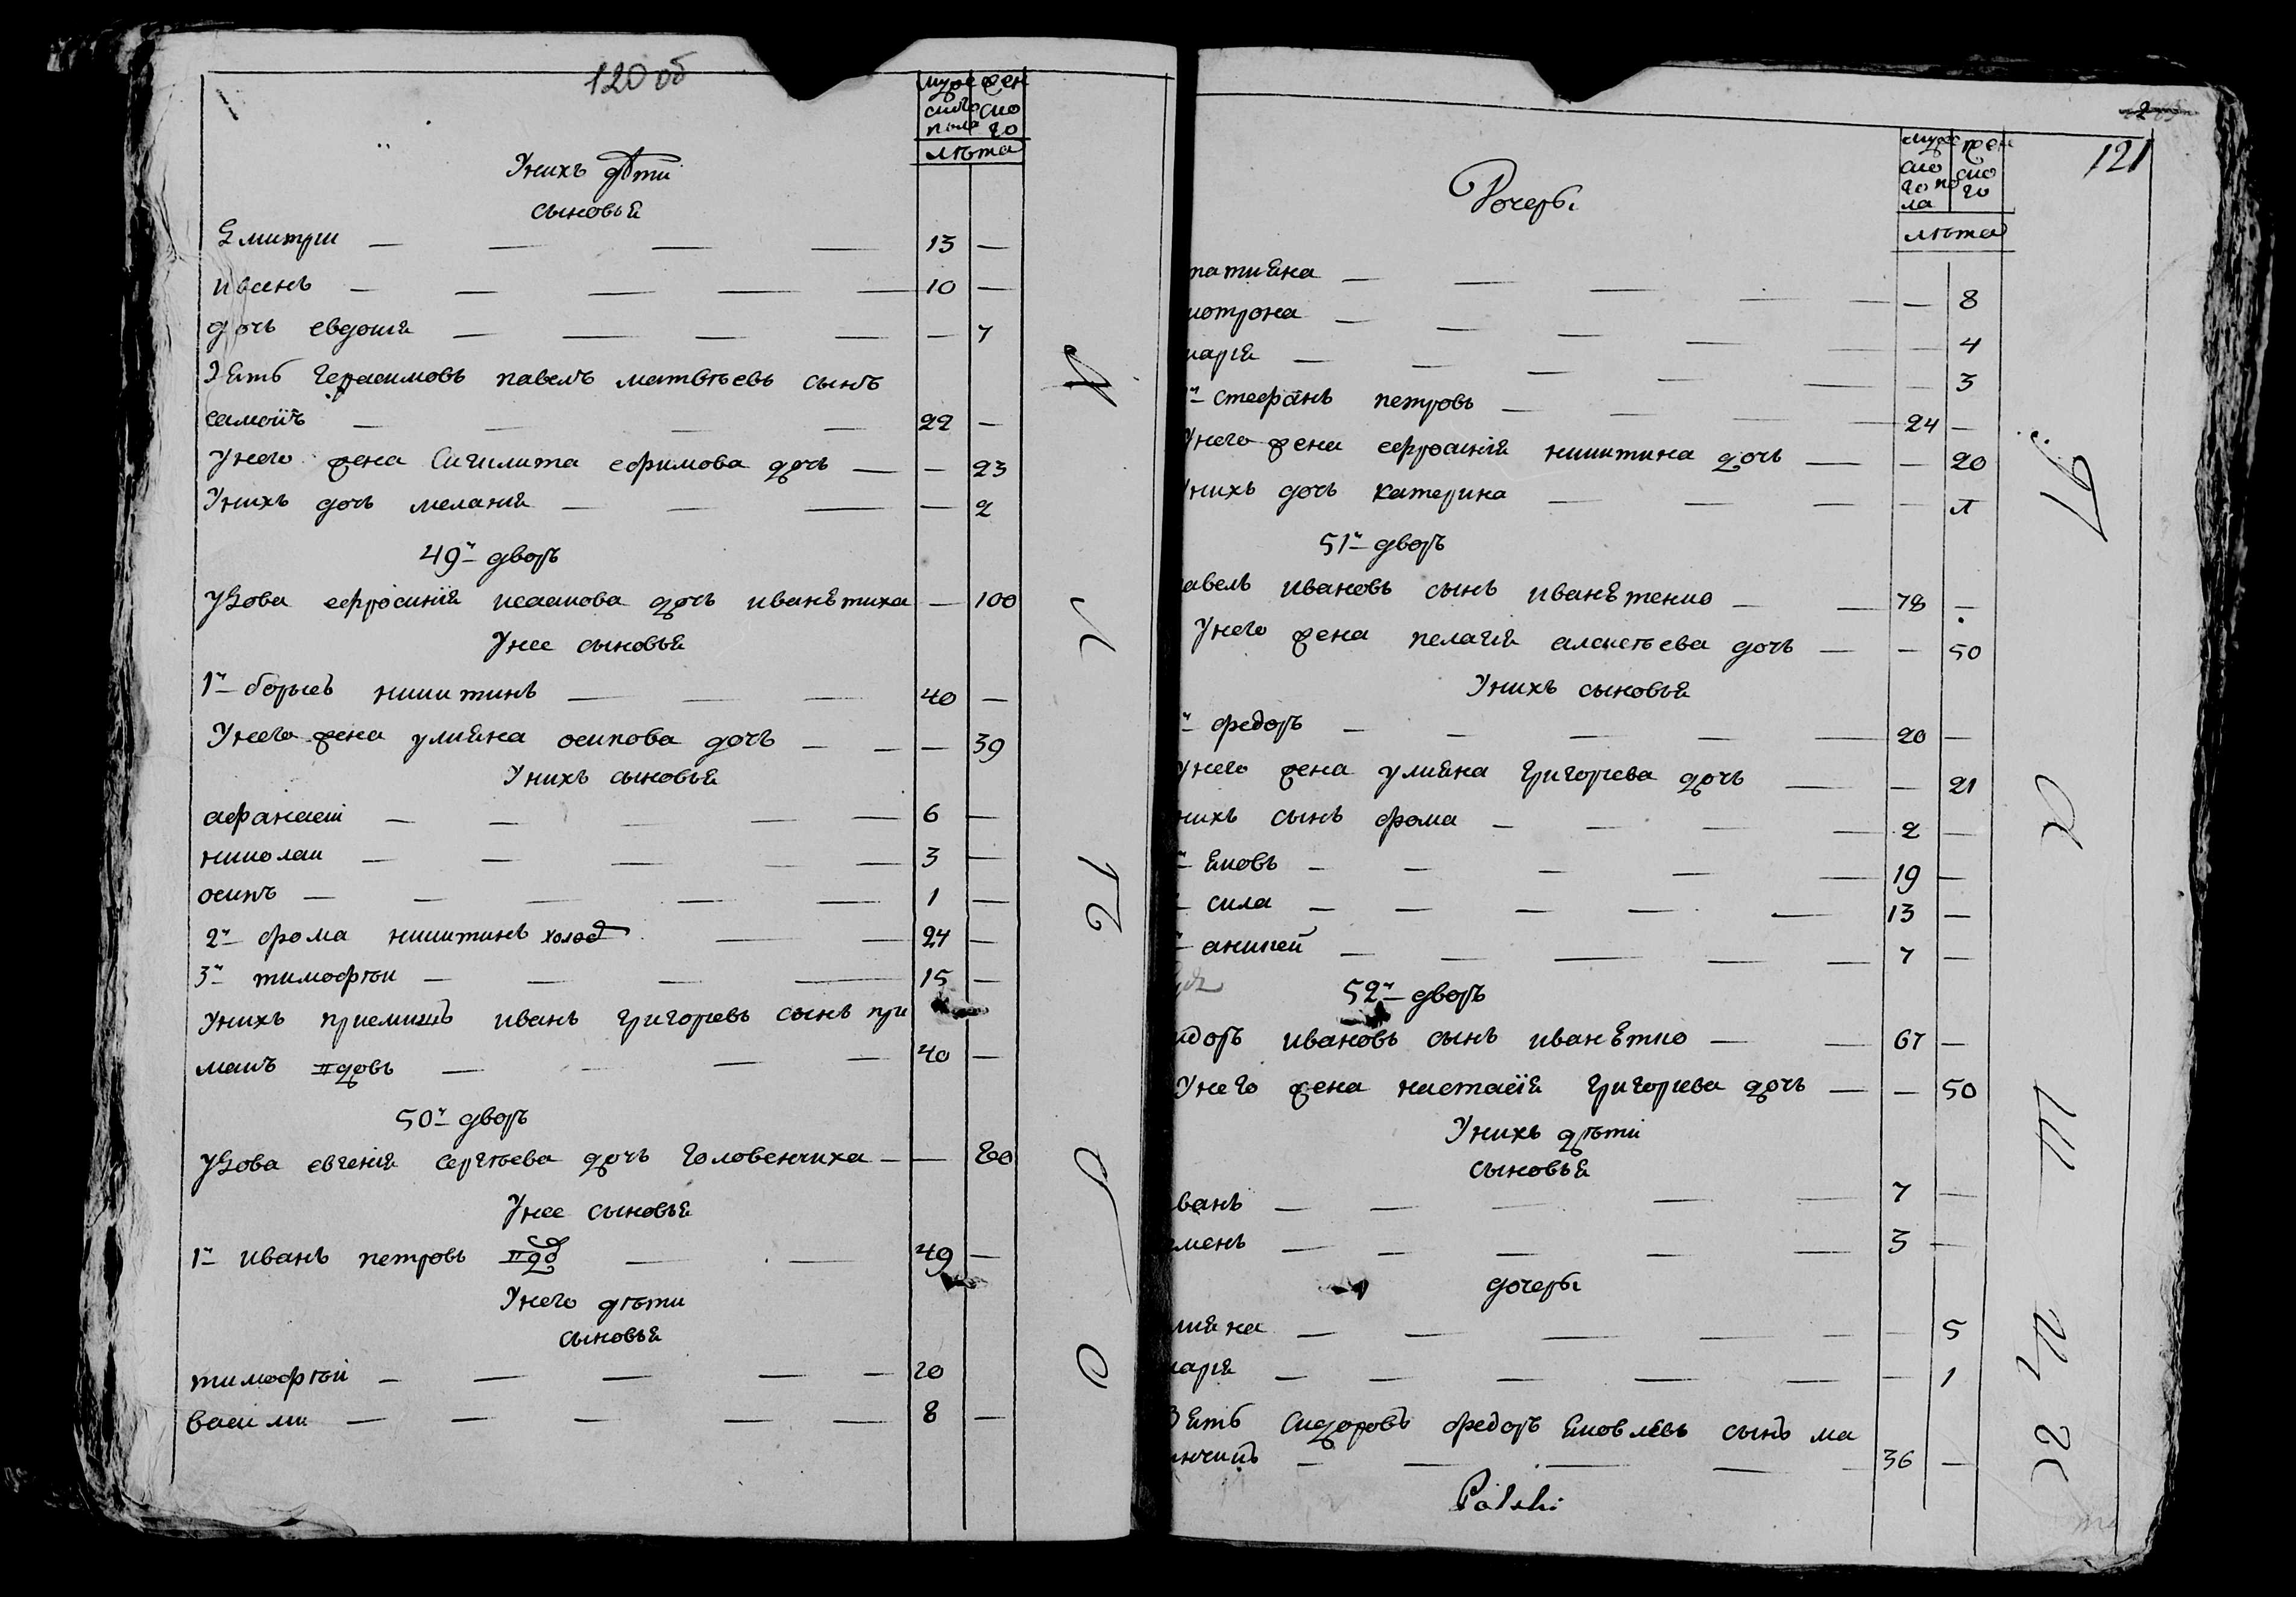 120 об
муже жен
ского ско
пола го
лѣта
Унихъ дѣти
сыновья
Дмитри — 13 —
иванъ — 10 —
дочь евдокия — — 7
Зять Герасимовъ павелъ матвѣевъ сынъ
22 —
Унего жена Сигклита ефимова дочь — — 23
Унихъ дочь мелания — — 2
49й дворъ
Удова ефросиния исакова дочь иванятиха — 100
Унее сыновья
1й борисъ никитинъ — 40 —
Унего жена улияна осипова дочь — — 39
Унихъ сыновья
афанасіи — 6 —
николаи — 3 —
осипъ — 1 —
2й фома никитинъ холос — 24 —
3й тимофѣи — 15 —
Унихъ приемишъ иванъ григорьевъ сынъ при
макъ вдовъ — 40 —
50й дворъ
Удова евгения сергѣева дочь головенчиха — — 60
Унее сыновья
1й иванъ петровъ вдо — 49 —
Унего дѣти
сыновья
тимофѣй — 20
васили — 8 —
121
муже жен
ско ско
го по го
ла
лѣта
Дочери
татияна — — 8
мотрона — — 4
марія — — 3
й стефанъ петровъ — 24 —
Унего жена ефросинія никитина дочь — — 20
Унихъ дочь катерина — —
51й дворъ
авелъ ивановъ сынъ иванятенко — 78 —
Унего жена пелагія алексѣева дочь — — 50
Унихъ сыновья
й федоръ — 20 —
Унего жена улияна григорьева дочь — — 21
нихъ сынъ фома — 2 —
й яковъ — 19 —
сила — 13 —
й аникей — 7 —
52й дворъ
идоръ ивановъ сынъ иванятко — 67 —
Унего жена настасія григорьева дочь — — 50
Унихъ дѣти
сыновья
ванъ — 7 —
емень — 3 —
дочери
лияна — — 5
марія — — 1
Зять Сидоровъ федоръ яковлевъ сынъ ма
36 —